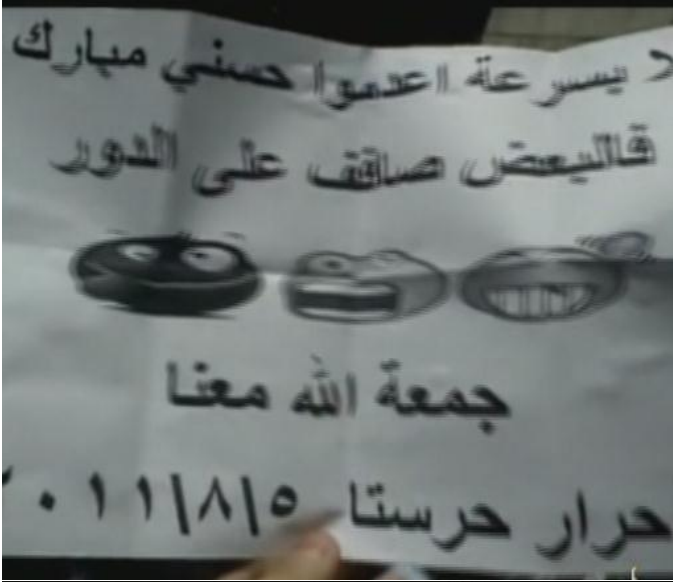 يسرعة اعدموا حسني مبارك
فالبعض صافف على الدور
جمعة الله معنا
حرار حرستا ٢٠١١/٨/٥